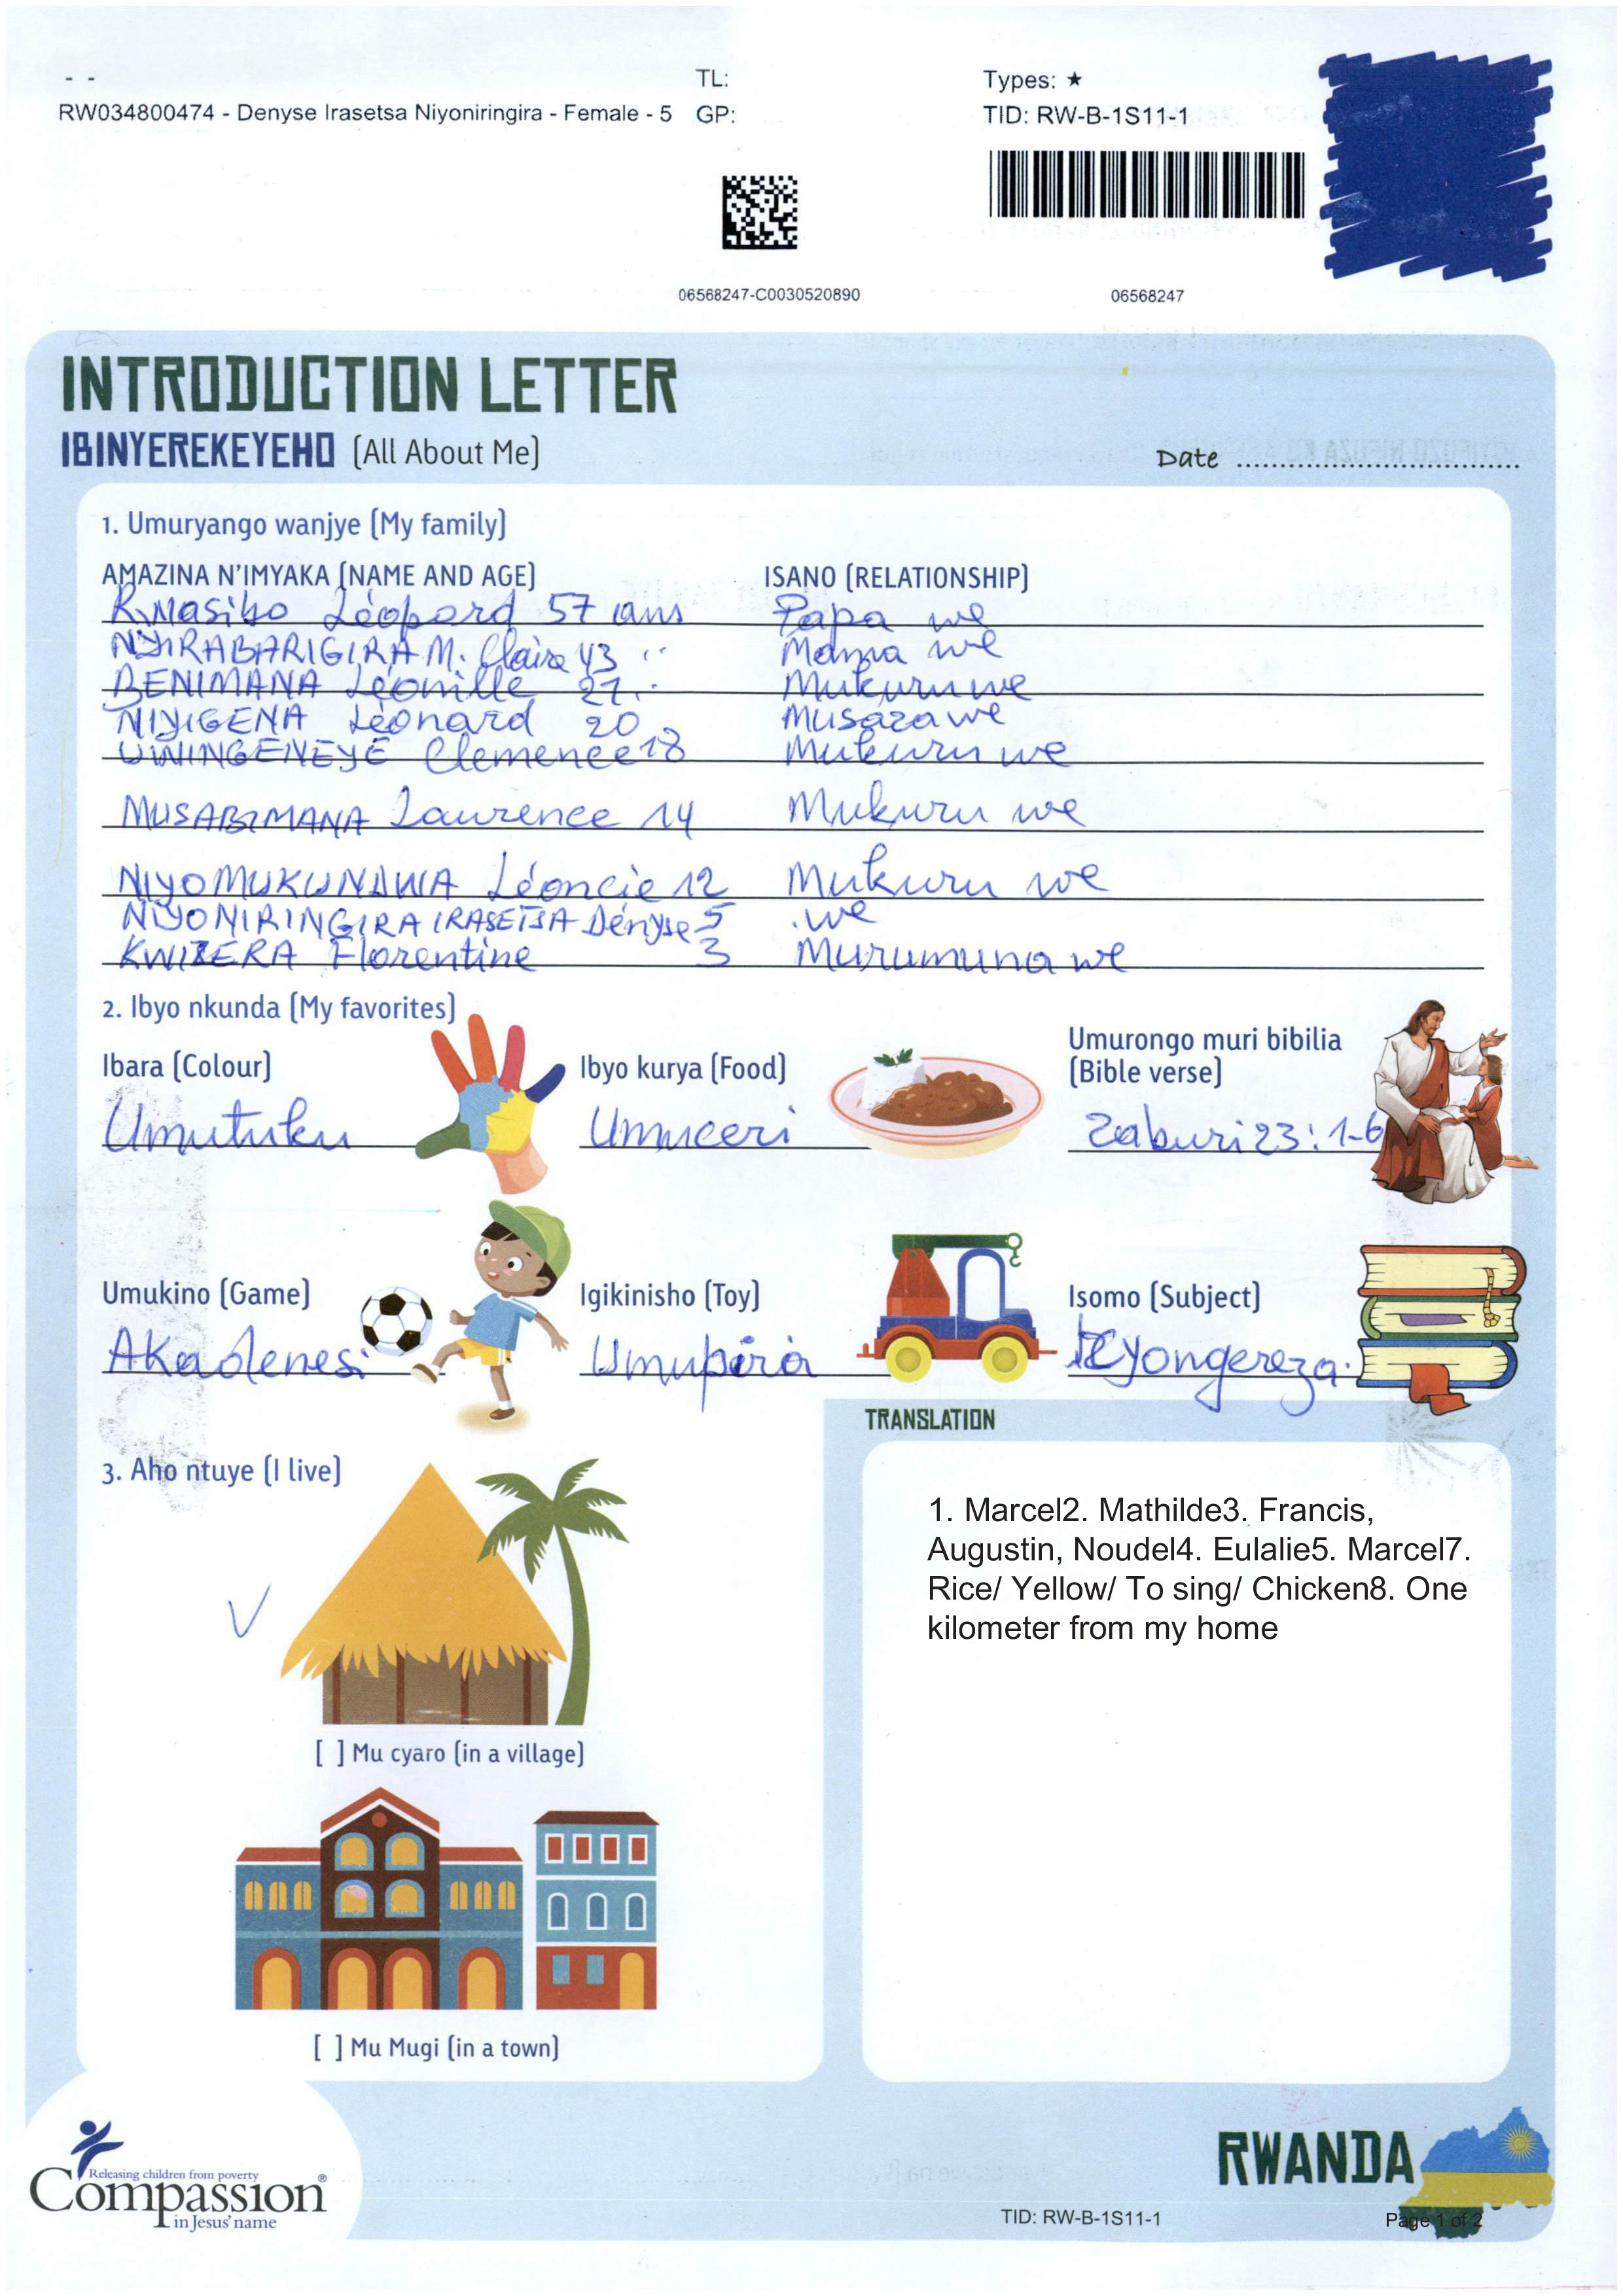 - -
TL:
Types: ★
RW034800474 - Denyse Irasetsa Niyoniringira - Female - 5 GP:
TID: RW-B-1S11-1
06568247-C0030520890
06568247
INTRODUCTION LETTER
IBINYEREKEYEHO (All About Me)
Date ..................................
1. Umuryango wanjye (My family)
AMAZINA N'IMYAKA (NAME AND AGE) ISANO (RELATIONSHIP)
Rwasibo Léopord 57 ans Papa we
NYIRABARIGIRA M. Claire 43 '' Mama we
BENIMANA Léonille 21 '' Mukuru we
NIYIGENA Léonard 20 Musaza we
UWINGENEYE Clemence 18 Mukuru we
MUSABIMANA Laurence 14 Mukuru we
NIYOMUKUNDWA Léoncie 12 Mukuru we
NIYONIRINGIRA IRASETSA Denyse 5 .we
KWIZERA Florentine 3 Murumuna we
2. Ibyo nkunda (My favorites)
Ibara (Colour)
Umutuku
Ibyo kurya (Food)
Umuceri
Umurongo muri bibilia
(Bible verse)
Zaburi 23: 1-6
Umukino (Game)
Akadenesi
Igikinisho (Toy)
Umupira
Isomo (Subject)
Icyongereza.
3. Aho ntuye (I live)
[ ] Mu cyaro (in a village)
[ ] Mu Mugi (in a town)
TRANSLATION
1. Marcel2. Mathilde3. Francis,
Augustin, Noudel4. Eulalie5. Marcel7.
Rice/ Yellow/ To sing/ Chicken8. One
kilometer from my home
Releasing children from poverty
Compassion®
in Jesus' name
RWANDA
TID: RW-B-1S11-1
Page 1 of 2